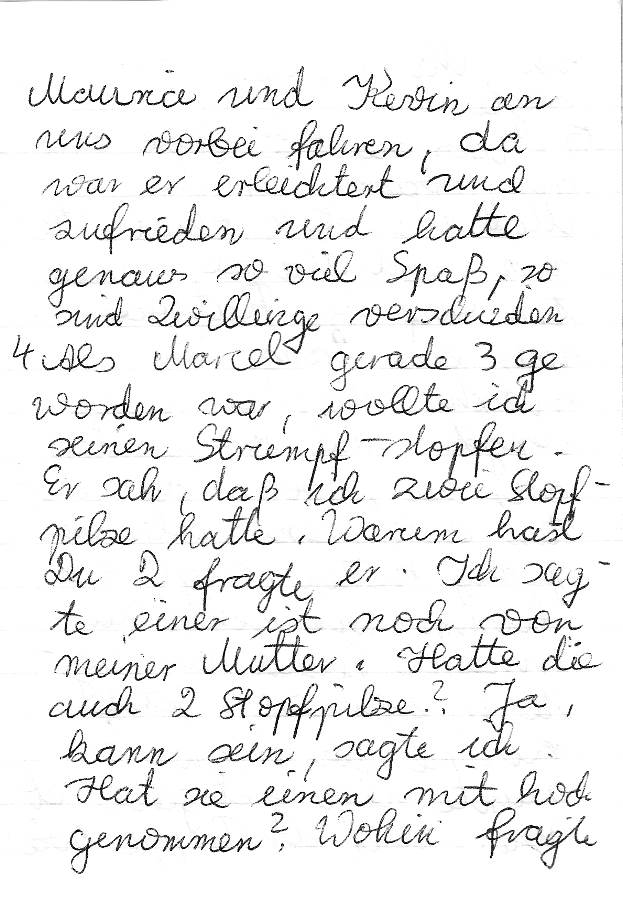 Maurice und Kevin an
uns vorbei fahren, da
war er erleichtert und
zufrieden und hatte
genaus so viel Spaß, so
sind Zwillinge verschieden
4 Als Marcel gerade 3 ge
worden war, wollte ich
seinen Strumpf stopfen.
Er sah, daß ich zwei Stopf-
pilze hatte. Warum hast
Du 2 fragte er. Ich sag-
te einer ist noch von
meiner Mutter. Hatte die
auch 2 Stopfpilze? Ja,
kann sein, sagte ich.
Hat sie einen mit hoch
genommen? Wohin fragte